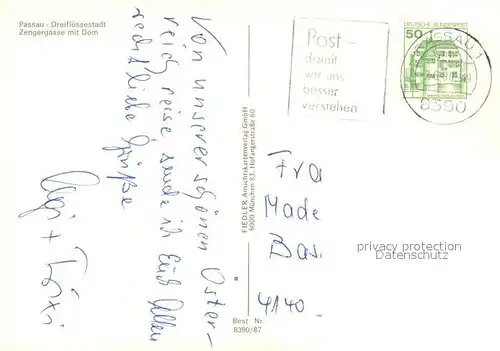 Passau - Dreiflüssestadt
Zengergasse mit Dom
Von unserer schönen Öster-
reich reise sende ich Euch Allen
recht liebe Grüße
FIEDLER Ansichtskartenverlag GmbH
8000 München 83, Hofangerstraße 60
Best Nr
8390/87
Post -
damit
wir uns
besser
verstehen
50
DEUTSCHE BUNDESPOST
PASSAU 1
8390
Fra
Made
Bas.
4140
privacy protection
Datenschutz